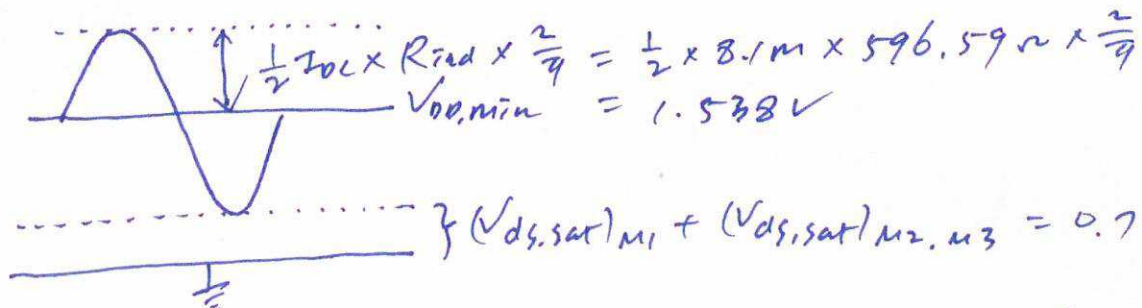 ½ I_DC × R_ind × 2/π = ½ × 8.1m × 596.59Ω × 2/π
V_DD,min = 1.538V
} (V_ds,sat)_M1 + (V_ds,sat)_M2,M3 = 0.7